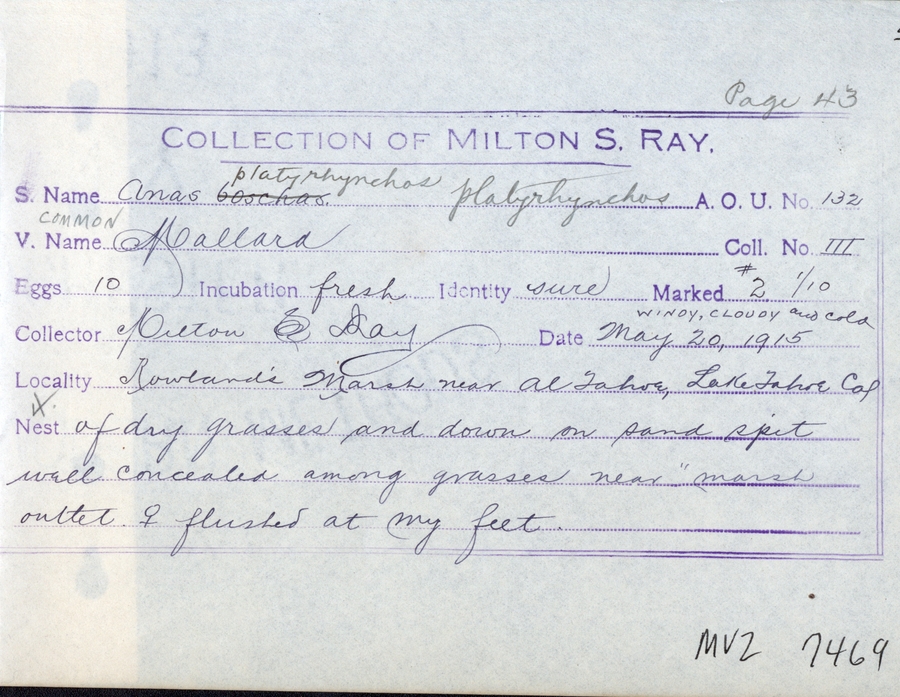 Page 43
COLLECTION OF MILTON S. RAY.
platyrhynchos
S. Name Anas boschas. platyrhynchos A. O. U. No. 132
COMMON
V. Name Mallard Coll. No. III
Eggs 10 Incubation fresh Identity sure Marked #2 1/10
WINDY, CLOUDY and cold
Collector Milton S Ray Date May 20, 1915
Locality Rowland's Marsh near Al Tahoe, Lake Tahoe Cal
X.
Nest of dry grasses and down on sand spit
well concealed among grasses near "marsh
outlet. ♀ flushed at my feet.
MVZ 7469